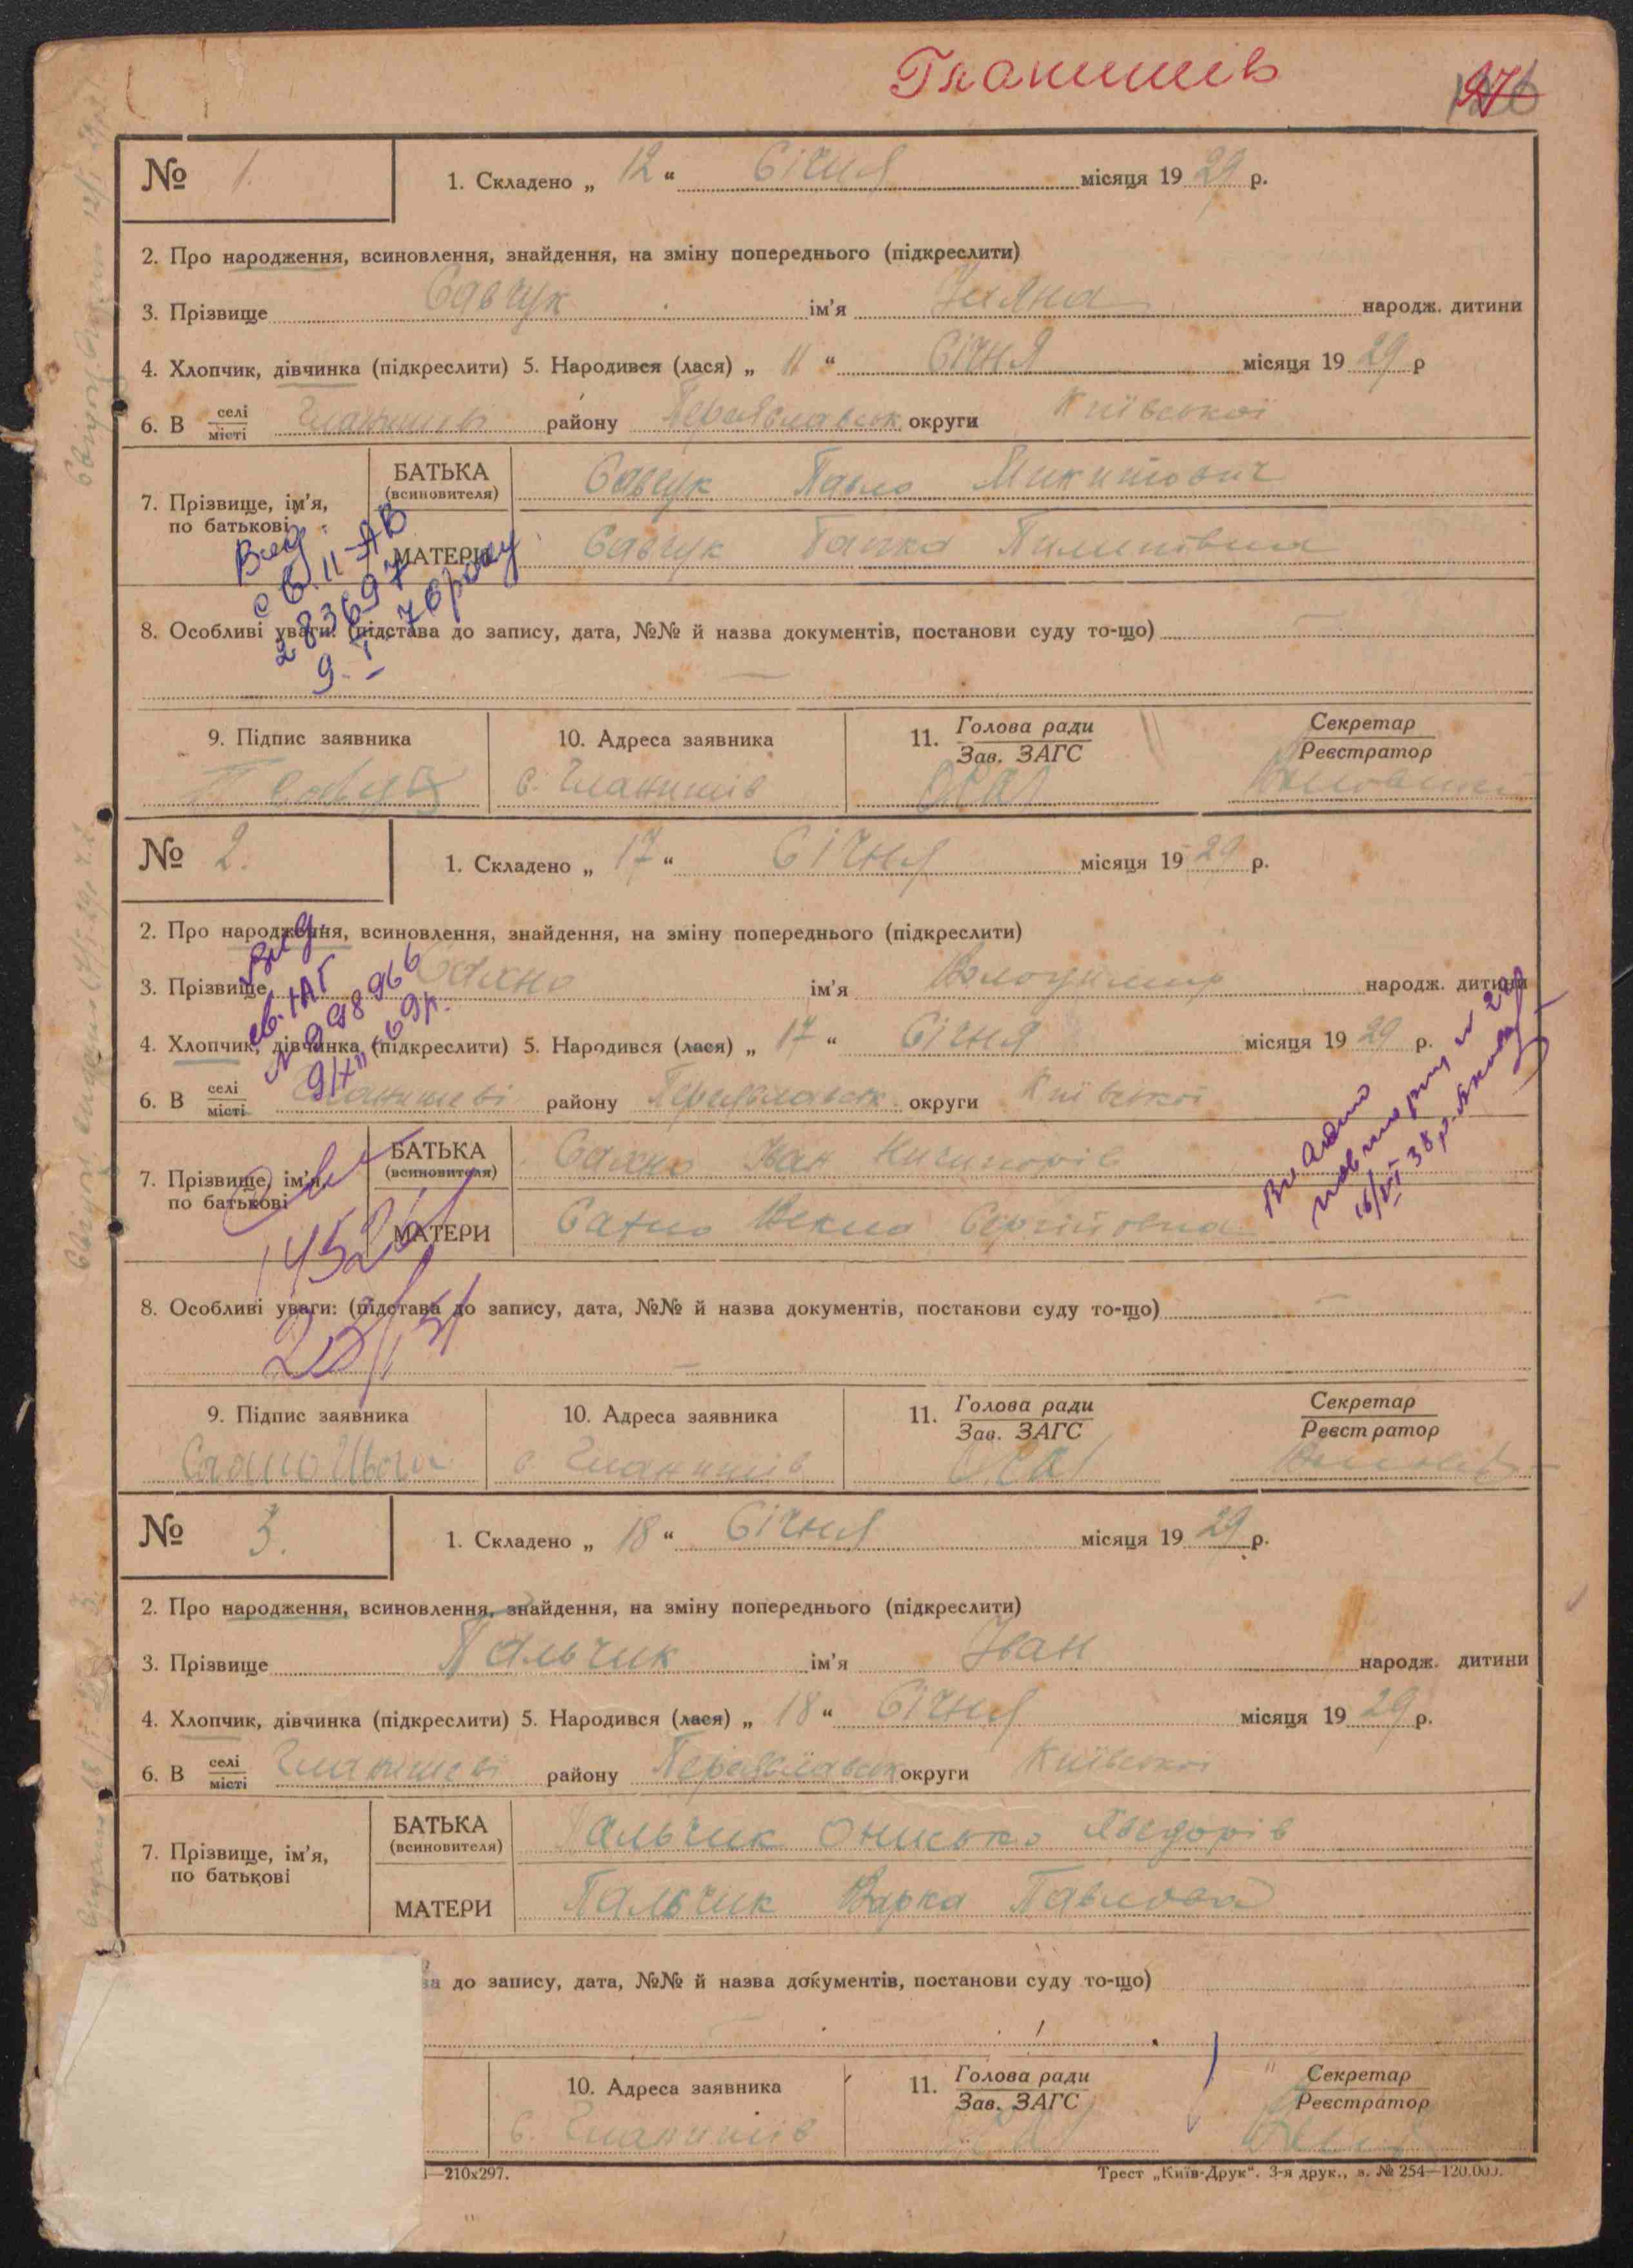 Гланишів
№ 1. 1. Складено „ 12 “ Січня місяця 1929 р.
2. Про народження, всиновлення, знайдення, на зміну попереднього (підкреслити)
3. Прізвище Савчук ім’я Уляна народж. дитини
4. Хлопчик, дівчинка (підкреслити) 5. Народився (лася) „ 11 “ Січня місяця 1929 р
6. В селі місті Гланишеві району Переяславськ округи Київської
7. Прізвище, ім’я, по батькові
БАТЬКА (всиновителя) Савчук Павло Микитович
МАТЕРИ Савчук Гапка Пилипівна
8. Особливі уваги: (підстава до запису, дата, №№ й назва документів, постанови суду то-що)
9. Підпис заявника 10. Адреса заявника 11. Голова ради Зав. ЗАГС Секретар Реєстратор
с. Гланишів
№ 2. 1. Складено „ 17 “ Січня місяця 1929 р.
2. Про народження, всиновлення, знайдення, на зміну попереднього (підкреслити)
3. Прізвище Сахно ім’я Володимир народж. дитини
4. Хлопчик, дівчинка (підкреслити) 5. Народився (лася) „ 17 “ Січня місяця 1929 р.
6. В селі місті Гланишеві району Переяславськ округи Київської
7. Прізвище, ім’я, по батькові
БАТЬКА (всиновителя) Сахно Іван Ничипорів
МАТЕРИ Сахно Текла Сергіївна
8. Особливі уваги: (підстава до запису, дата, №№ й назва документів, постанови суду то-що)
9. Підпис заявника 10. Адреса заявника 11. Голова ради Зав. ЗАГС Секретар Реєстратор
Сахно с. Гланишів
№ 3. 1. Складено „ 18 “ Січня місяця 1929 р.
2. Про народження, всиновлення, знайдення, на зміну попереднього (підкреслити)
3. Прізвище Пальчик ім’я Іван народж. дитини
4. Хлопчик, дівчинка (підкреслити) 5. Народився (лася) „ 18 “ Січня місяця 1929 р.
6. В селі місті Гланишеві району Переяславськ округи Київської
7. Прізвище, ім’я, по батькові
БАТЬКА (всиновителя) Пальчик Онисько Хведорів
МАТЕРИ Пальчик Варка Павлова
ва до запису, дата, №№ й назва документів, постанови суду то-що)
10. Адреса заявника 11. Голова ради Зав. ЗАГС Секретар Реєстратор
с. Гланишів
—210х297. Трест „Київ-Друк“. 3-я друк., з. № 254—120.000.